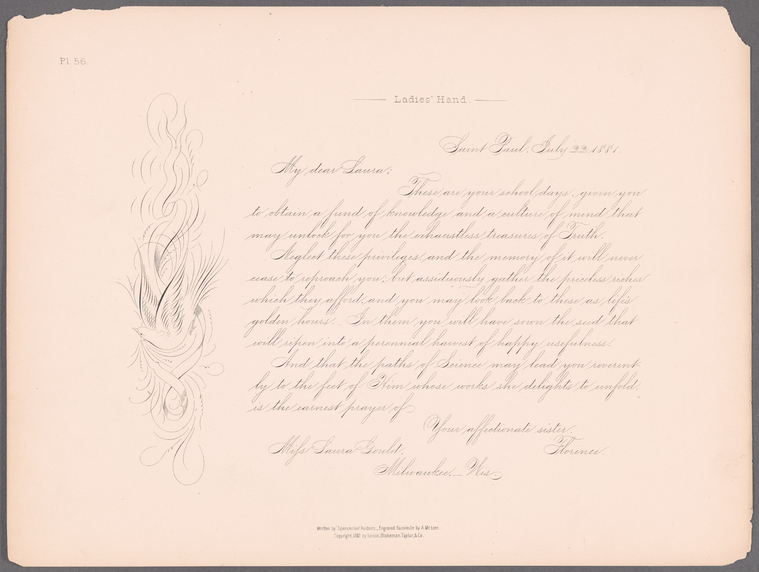 Pl. 56.
Ladies' Hand.
Saint Paul, July 22, 1881.
My dear Laura:
These are your school days, given you
to obtain a fund of knowledge and a culture of mind that
may unlock for you the exhaustless treasures of Truth.
Neglect these privileges and the memory of it will never
cease to reproach you, but assiduously gather the priceless riches
which they afford and you may look back to these as life's
golden hours. In them you will have sown the seed that
will ripen into a perennial harvest of happy usefulness.
And that the paths of Science may lead you reverent-
ly to the feet of Him whose works she delights to unfold,
is the earnest prayer of
Your affectionate sister,
Florence.
Miss Laura Gould,
Milwaukee, Wis.
Written by Spencerian Authors, Engraved Facsimile by A. McLees.
Copyright, by Ivison, Blakeman, Taylor, & Co.